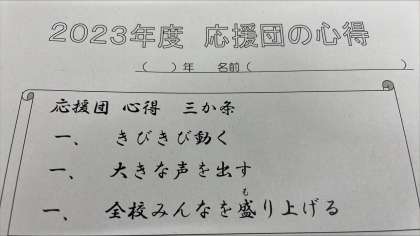 2023年度 応援団の心得
（ ）年 名前（ ）
応援団 心得 三か条
一、 きびきび動く
一、 大きな声を出す
一、 全校みんなを盛り上げる
も